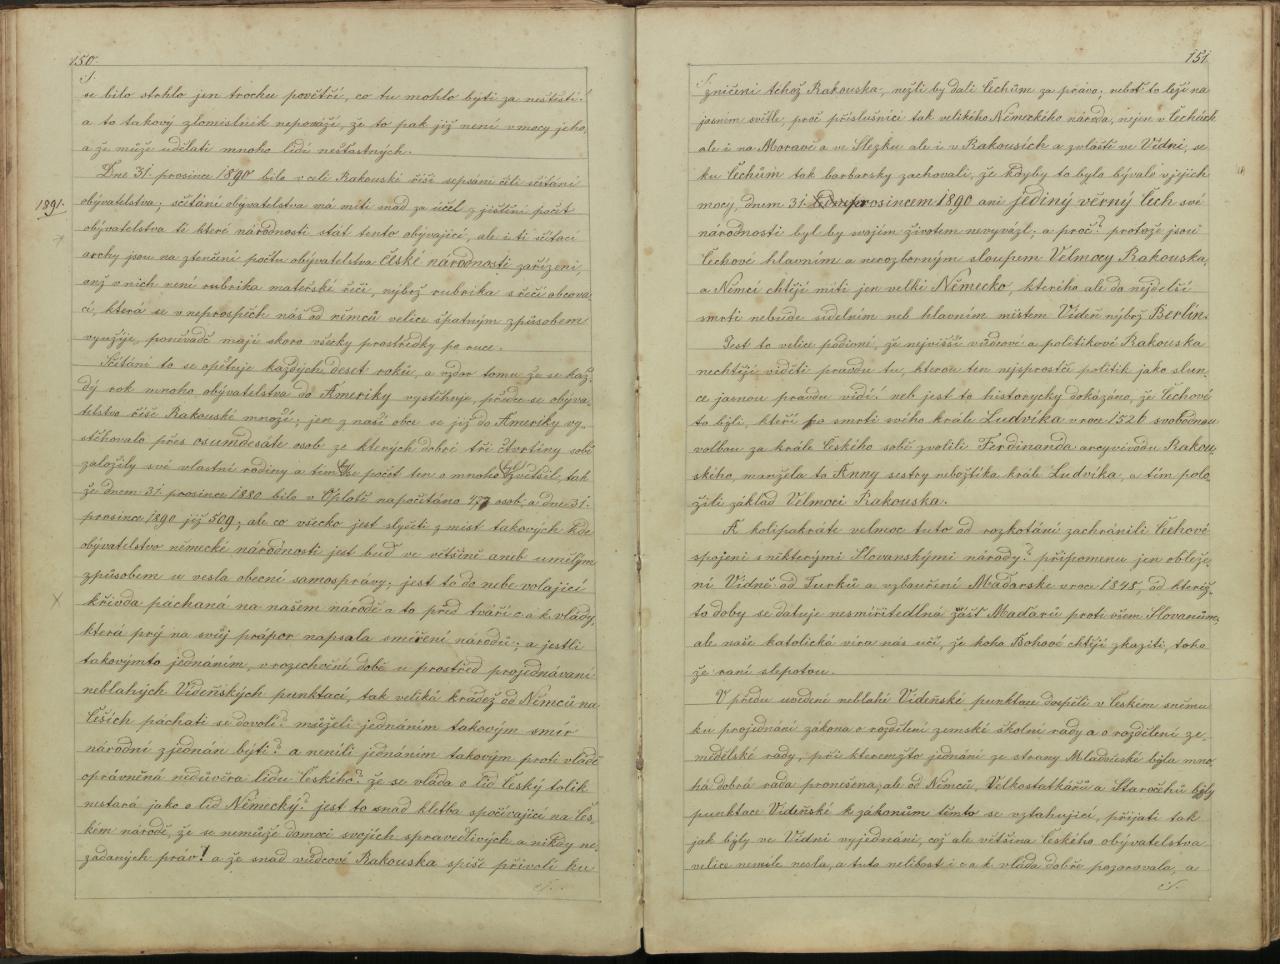 150.
S.
se bilo strhlo jen trochu povětří, co tu mohlo býti za neštěstí!
a to takový zlomislník nepováží, že to pak již není v mocy jeho,
a že může udělati mnoho lidí nešťastných.
Dne 31. prosince 1890 bilo v celé Rakouské říši sepsání čili sčítání
1891.
obývatelstva; sčítání obývatelstva má míti snad za účel zjištění počet
obývatelstva té které národnosti stát tento obývající, ale i ti sčítací
archy jsou na ztenčení počtu obývatelstva České národnosti zařízeni,
anž v nich není rubrika mateřské řeči, nýbrž rubrika s řečí obcova-
cí, která se v neprospěch náš od němců velice špatným způsobem
využije, poněvadč mají skoro všecky prostředky po ruce.
Sčítání to se opětuje každých deset roků, a vzdor tomu že se kaž-
dý rok mnoho obývatelstva do Ameriky vystěhuje, předce se obýva-
telstvo říše Rakouské množí; jen z naší obce se již do Ameriky vy-
stěhovalo přes osumdesáte osob ze kterých dobré tři čtvrtiny sobě
založily své vlastní rodiny a tím by se počet ten o mnoho byl zvětšil, tak
že dnem 31. prosince 1880 bilo v Oplotě napočítáno 477 osob, a dne 31.
prosince 1890 již 509; ale co všecko jest slyšeti z míst takových kde
obývatelstvo německé národnosti jest buď ve většině aneb umělým
způsobem u vesla obecní samosprávy; jest to do nebe volající
křivda páchaná na našem národě a to před tváří c. a k. vlády,
která prý na svůj prápor napsala smíření národů; a jestli
takovýmto jednáním, v rozechvěné době u prostřed projednávaní
neblahých Vídeňských punktací, tak veliká krádež od Němců na
Češích páchati se dovolí? můželi jednáním takovým smír
národní zjednán býti? a nenili jednáním takovým proti vládě
oprávněná nedůvěra lidu Českého? že se vláda o lid Český tolik
nestará jako o lid Německý? jest to snad kletba spočívající na Čes-
kém národě, že se nemůže domoci svojich spravedlivých a nikdy ne-
zadaných práv! a že snad vůdcové Rakouska spíše přivolí ku
S.
151.
S.
zničení téhož Rakouska, nežli by dali Čechům za právo; neboť to leží na
jasném světle, proč příslušníci tak velikého Německého národa, nejen v Čechách
ale i na Moravě a ve Slezku ale i v Rakousích a zvláště ve Vídni, se
ku Čechům tak barbarsky zachovali, že kdyby to bylo bývalo v jejich
mocy, dnem 31. prosincem 1890 ani jediný věrný Čech své
národnosti byl by svojím životem nevyvázl; a proč? protože jsou
Čechové hlavním a nerozborným sloupem Velmocy Rakouska,
a Němci chtějí míti jen velké Německo, kterého ale do nejdelší
smrti nebude sídelním neb hlavním místem Vídeň nýbrž Berlín.
Jest to velice podivné, že nejvišší vůdcové a politikové Rakouska
nechtějí viděti pravdu tu, kterou ten nejsprostčí politik jako slun-
ce jasnou pravdu vidí: neb jest to historycky dokázáno, že Čechové
to býli, kteří po smrti svého krále Ludvíka v roce 1526 svobodnou
volbou za krále Českého sobě zvolili Ferdinanda arcyvévodu Rakou-
ského, manžela to Anny sestry nebožtíka krále Ludvíka, a tím polo-
žili základ Velmoci Rakouska.
A kolipatkráte velmoc tuto od rozkotání zachránili Čechové
spojeni s některými Slovanskými národy? připomenu jen obleže-
ní Vídně od Turků a vzbouření Maďarské v roce 1848, od kteréž-
to doby se datuje nesmiřitedlná zášť Maďarů proti všem Slovanům,
ale naše katolická víra nás učí, že koho Bohové chtějí zkaziti, toho
že raní slepotou.
V předu uvedené neblahé Vídeňské punktace dospěli v Českém sněmu
ku projednání zákona o rozdělení zemské školní rady a o rozdělení ze-
mědělské rady, při kteremžto jednání ze strany Mladočeské býla mno-
há dobrá rada pronešena, ale od Němců, Velkostatkářů a Staročehů býly
punktace Vídeňské k zákonům těmto se vztahující, přijatí tak
jak býly ve Vídni vyjednáni, což ale většina Českého obývatelstva
velice nemile nesla, a tuto nelibost i c. a k. vláda dobře pozorovala, a
S.